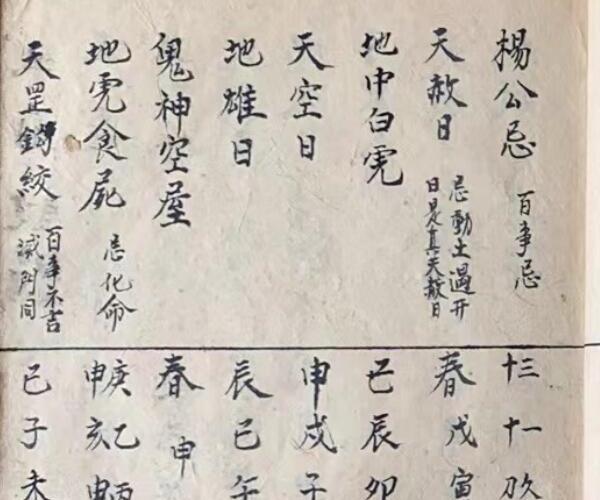 楊公忌 百事忌
十三 十一
天赦日 忌動土遇开日是真天赦日
春戊寅
地中白虎
巳辰卯
天空日
申戌子
地雄日
辰巳午
鬼神空屋
春申
地虎食屍 忌化命
庚乙
申亥申
天罡鈎絞 百事不吉 滅門同
巳子未